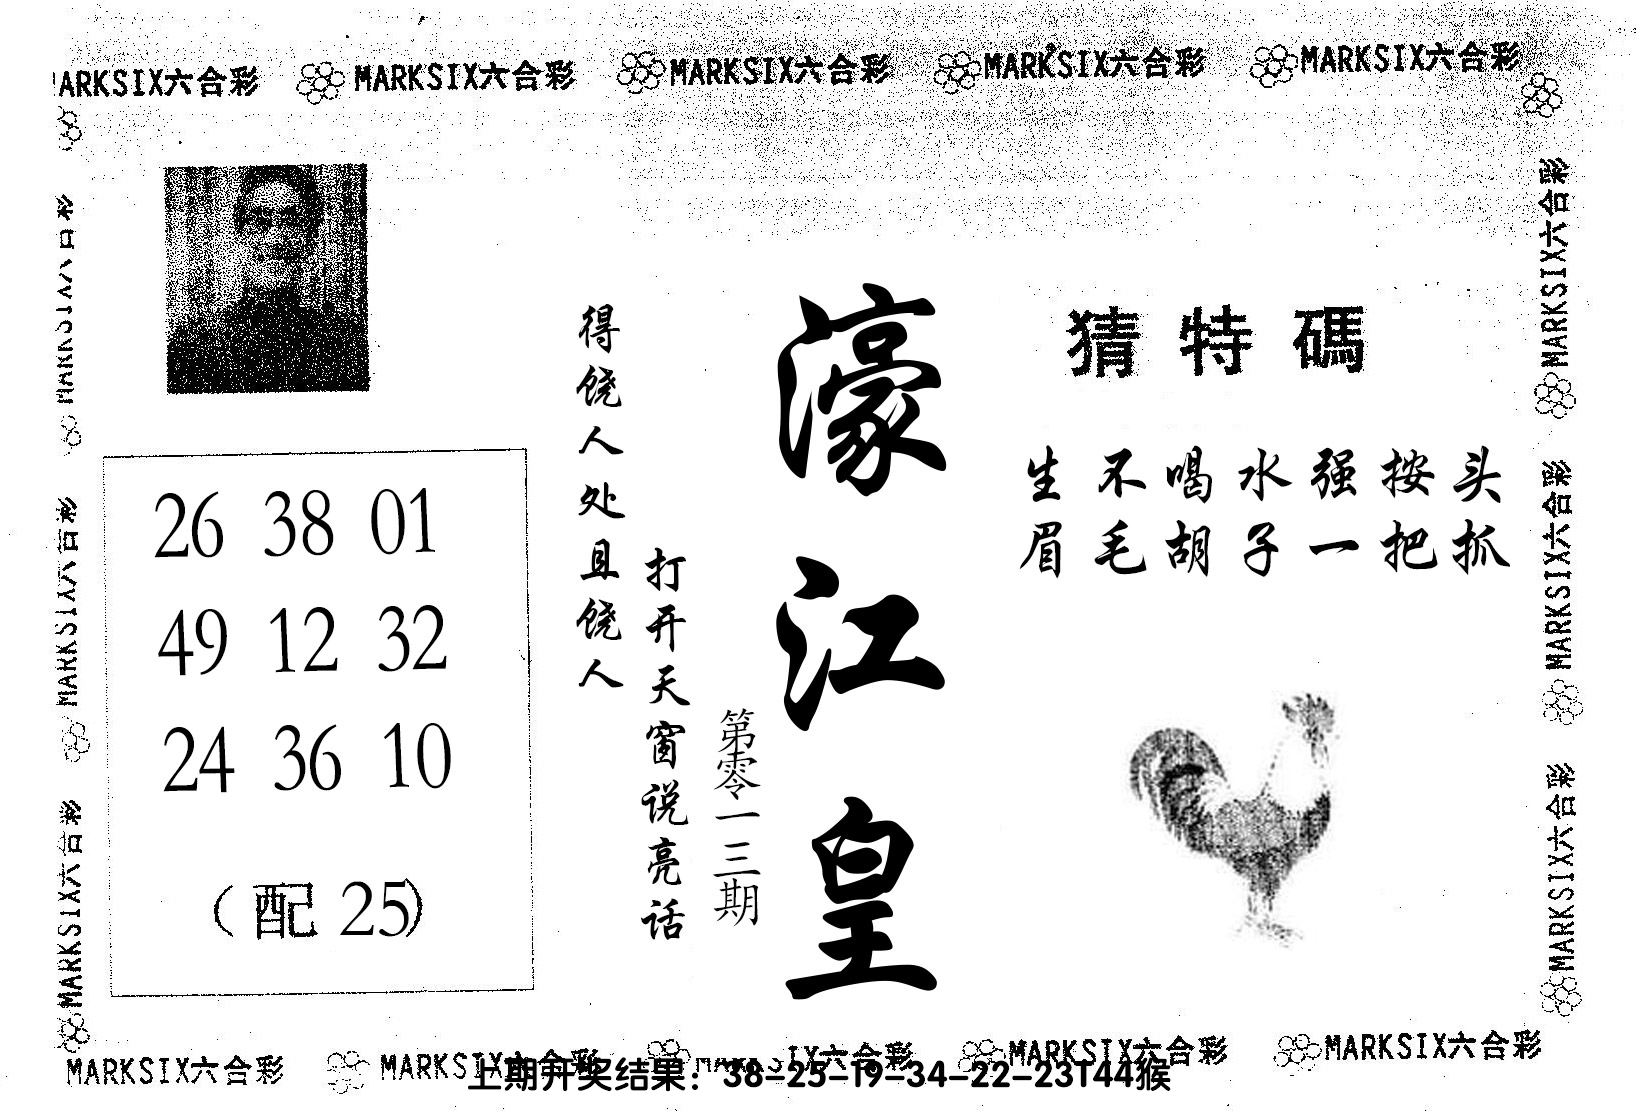 MARKSIX六合彩 MARKSIX六合彩 MARKSIX六合彩 MARKSIX六合彩
MARKSIX六合彩
猜特碼
生不喝水强按头
眉毛胡子一把抓
濠江皇
第零一三期
打开天窗说亮话
得饶人处且饶人
26 38 01
49 12 32
24 36 10
(配 25)
MARKSIX六合彩
MARKSIX六合彩
MARKSIX六合彩
MARKSIX六合彩
MARKSIX六合彩
MARKSIX六合彩 MARKSIX六合彩 MARKSIX六合彩 MARKSIX六合彩
上期开奖结果：38-25-19-34-22-23T44猴